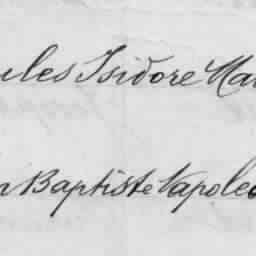 ules Isidore Na
n Baptiste Napoleo